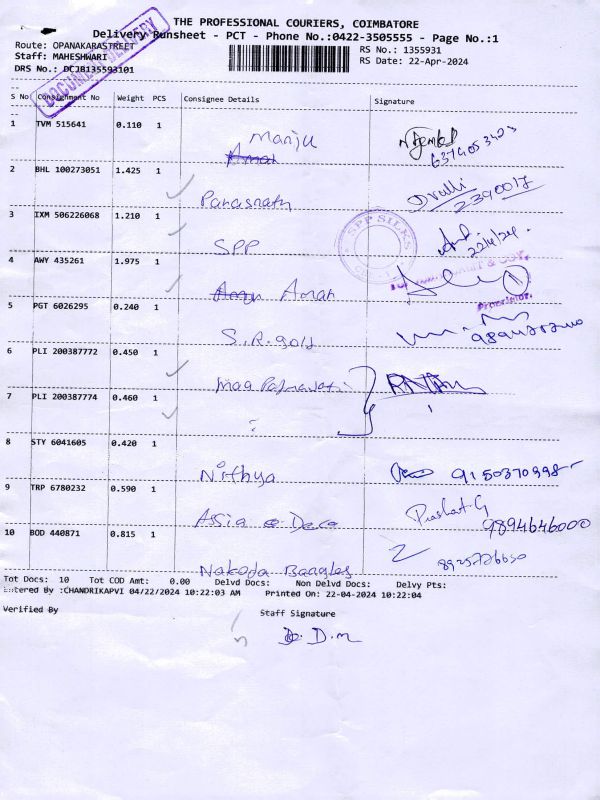 THE PROFESSIONAL COURIERS, COIMBATORE
Delivery Runsheet - PCT - Phone No.:0422-3505555 - Page No.:1
Route: OPANAKARASTREET
RS No.: 1355931
Staff: MAHESHWARI
RS Date: 22-Apr-2024
DRS No.: DCJB135593101
DOCUMENT DELIVERY
S No Consignment No Weight PCS Consignee Details Signature
1 TVM 515641 0.110 1
Manju
637405
2 BHL 100273051 1.425 1
Parasnath
2390017
3 IXM 506226068 1.210 1
SPP
SPP SILKS
22/4/24.
4 AWY 435261 1.975 1
Aman
Proprietor.
5 PGT 6026295 0.240 1
S.R. gold
6 PLI 200387772 0.450 1
maa
7 PLI 200387774 0.460 1
8 STY 6041605 0.420 1
Nithya
9 TRP 6780232 0.590 1
Assia Deco
Prashant G
9894646000
10 BOD 440871 0.815 1
Nakoda Bangles
Tot Docs: 10 Tot COD Amt: 0.00 Delvd Docs: Non Delvd Docs: Delvy Pts:
Entered By :CHANDRIKAPVI 04/22/2024 10:22:03 AM Printed On: 22-04-2024 10:22:04
Verified By
Staff Signature
D.m